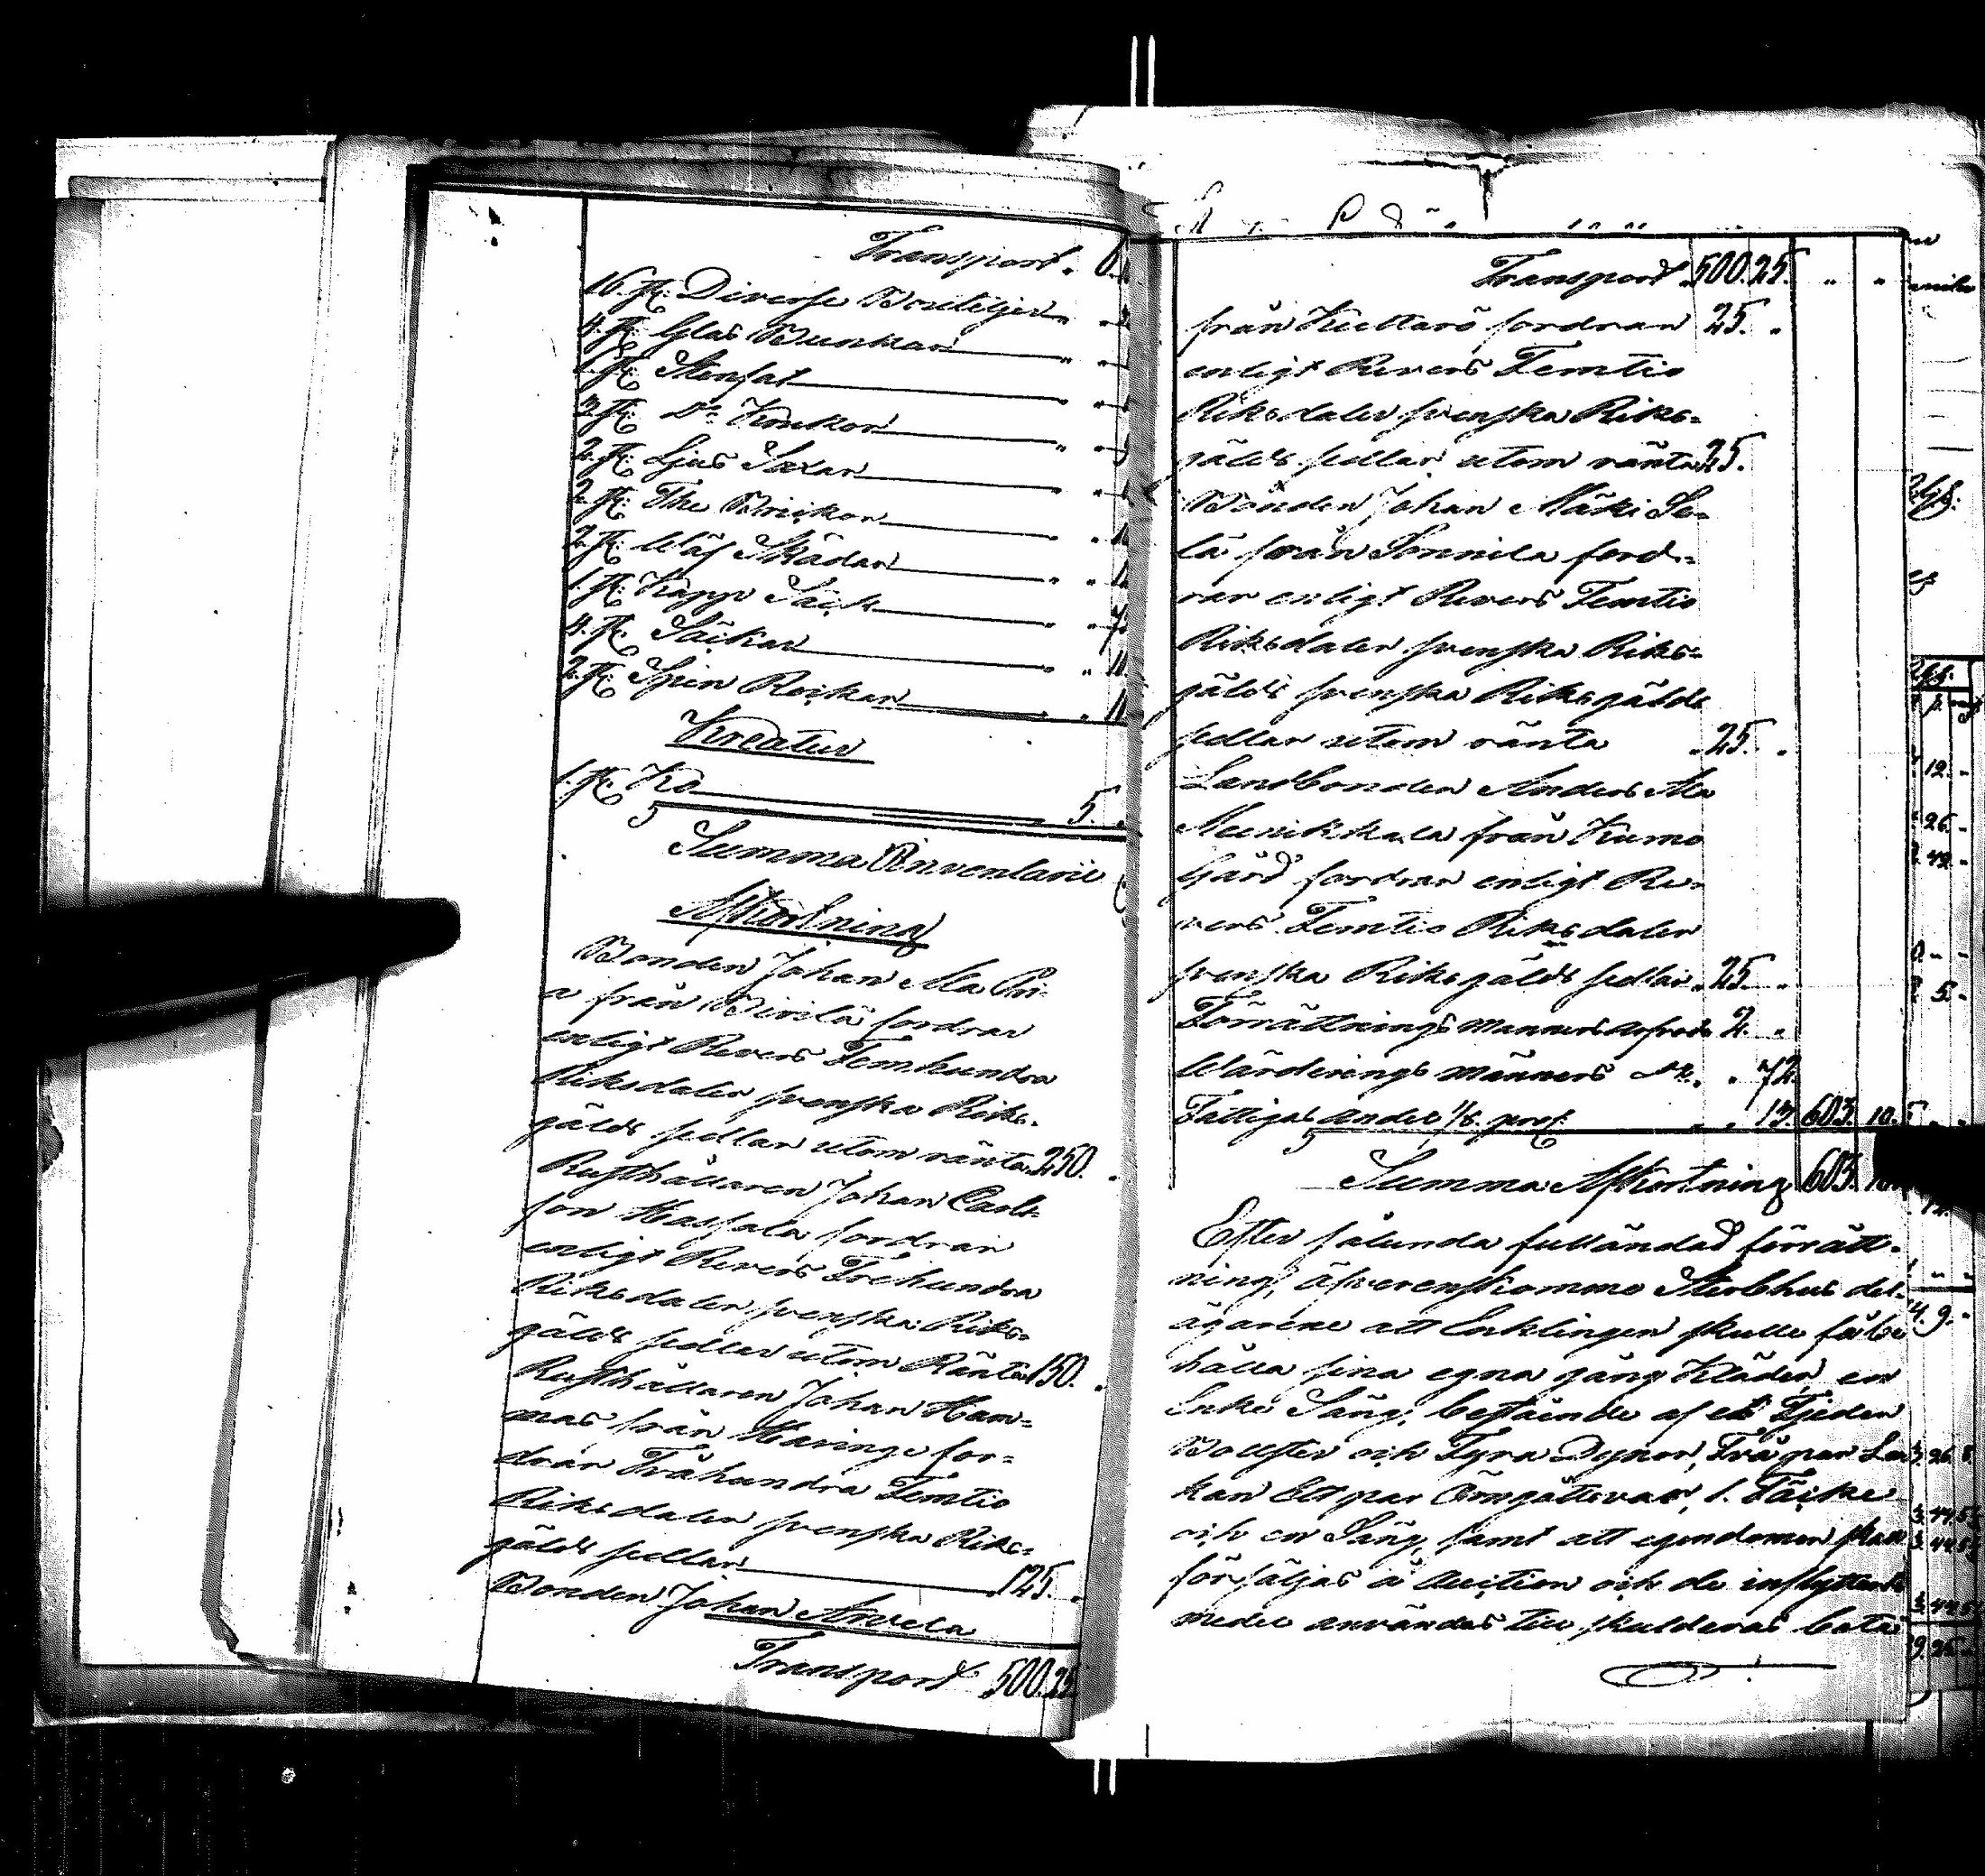 Transport.
16. st. Diverse Bouteljer
4. st. Glas Bunkar
1 st. Stenfat
3 st. Do Krukor
2. st. Ljus Saxar
2. st. The Brickor
2. st. Wäf Skädar
1. st. Kapp Säck
4. st. Säckar
2. st. Spin Rockar
Kreatur
1. st. Ko 5.
Summa Inventarii
Afkortning
Bonden Johan
a från fordrar
enligt Revers Femhundra
Riksdaler svenska Riks-
gälds sedlar utom ränta 250.
Rusthållaren Johan Carls-
son Hassala fordrar
enligt Revers Trehundra
Riksdaler svenska Riks-
gälds sedlar utom Ränta 150.
Rusthållaren Johan Ham-
mas från Haringe for-
drar Tvåhundra Femtio
Riksdaler svenska Riks-
gälds sedlar 125.
Bonden Johan Arvela
Transport 500.25.
Transport 500.25. " "
från Kuttarö fordran 25. "
enligt Revers Femtio
Riksdaler svenska Riks-
gälds sedlar utom ränta 25.
Bonden Johan Mäki Se-
lä från Sonnila ford-
rar enligt Revers Femtio
Riksdaler svenska Riks-
gälds svenska Riksgälds
sedlar utom ränta 25. "
Landbonden Anders
från Kumo
Gård fordrar enligt Re-
vers Femtio Riksdaler
svenska Riksgälds sedlar 25. "
Förrättnings mannens 2. "
Wärderings männers do. " 72.
Fattigas andel 1/8. proc. " 13. 603. 10.
Summa Afkortning 603. 10.
Efter sålunda fulländad förrätt-
ning, öfverenskommo Sterbhus del-
ägarene att Enklingen skulle få be-
hålla sina egna gång Kläder, en
Enke Säng, bestående af ett Fjeder
Bolster och Fyra Dynor, Två par La-
kan Ett par Örngåttsvar, 1. Täcke
och en Säng, samt att egendomen skall
försäljas å Auction och de inflytande
medel användas till skuldernas beta-